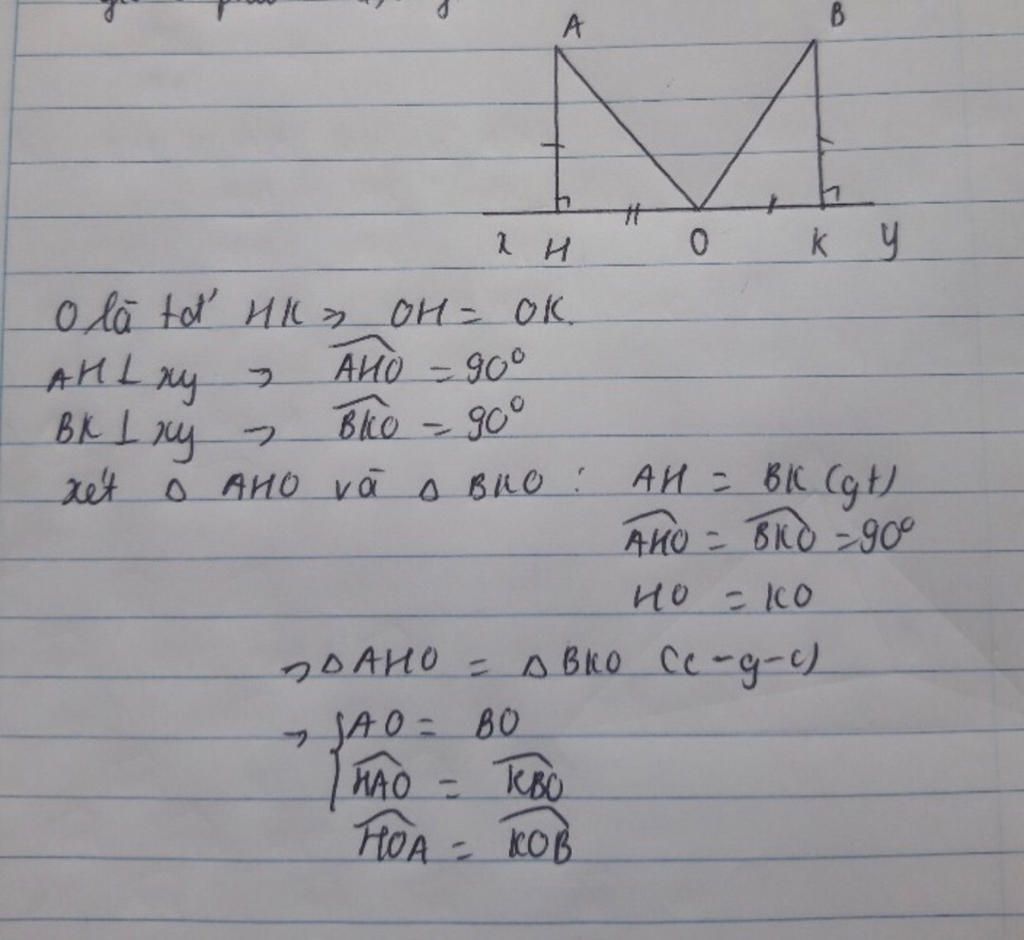 A B
x H O K y
O là tđ' HK ⇒ OH = OK.
AH ⊥ xy → \widehat{AHO} = 90°
BK ⊥ xy → \widehat{BKO} = 90°
xét Δ AHO và Δ BKO : AH = BK (gt)
\widehat{AHO} = \widehat{BKO} = 90°
HO = KO
→ Δ AHO = Δ BKO (c-g-c)
→ { AO = BO
\widehat{HAO} = \widehat{KBO}
\widehat{HOA} = \widehat{KOB}